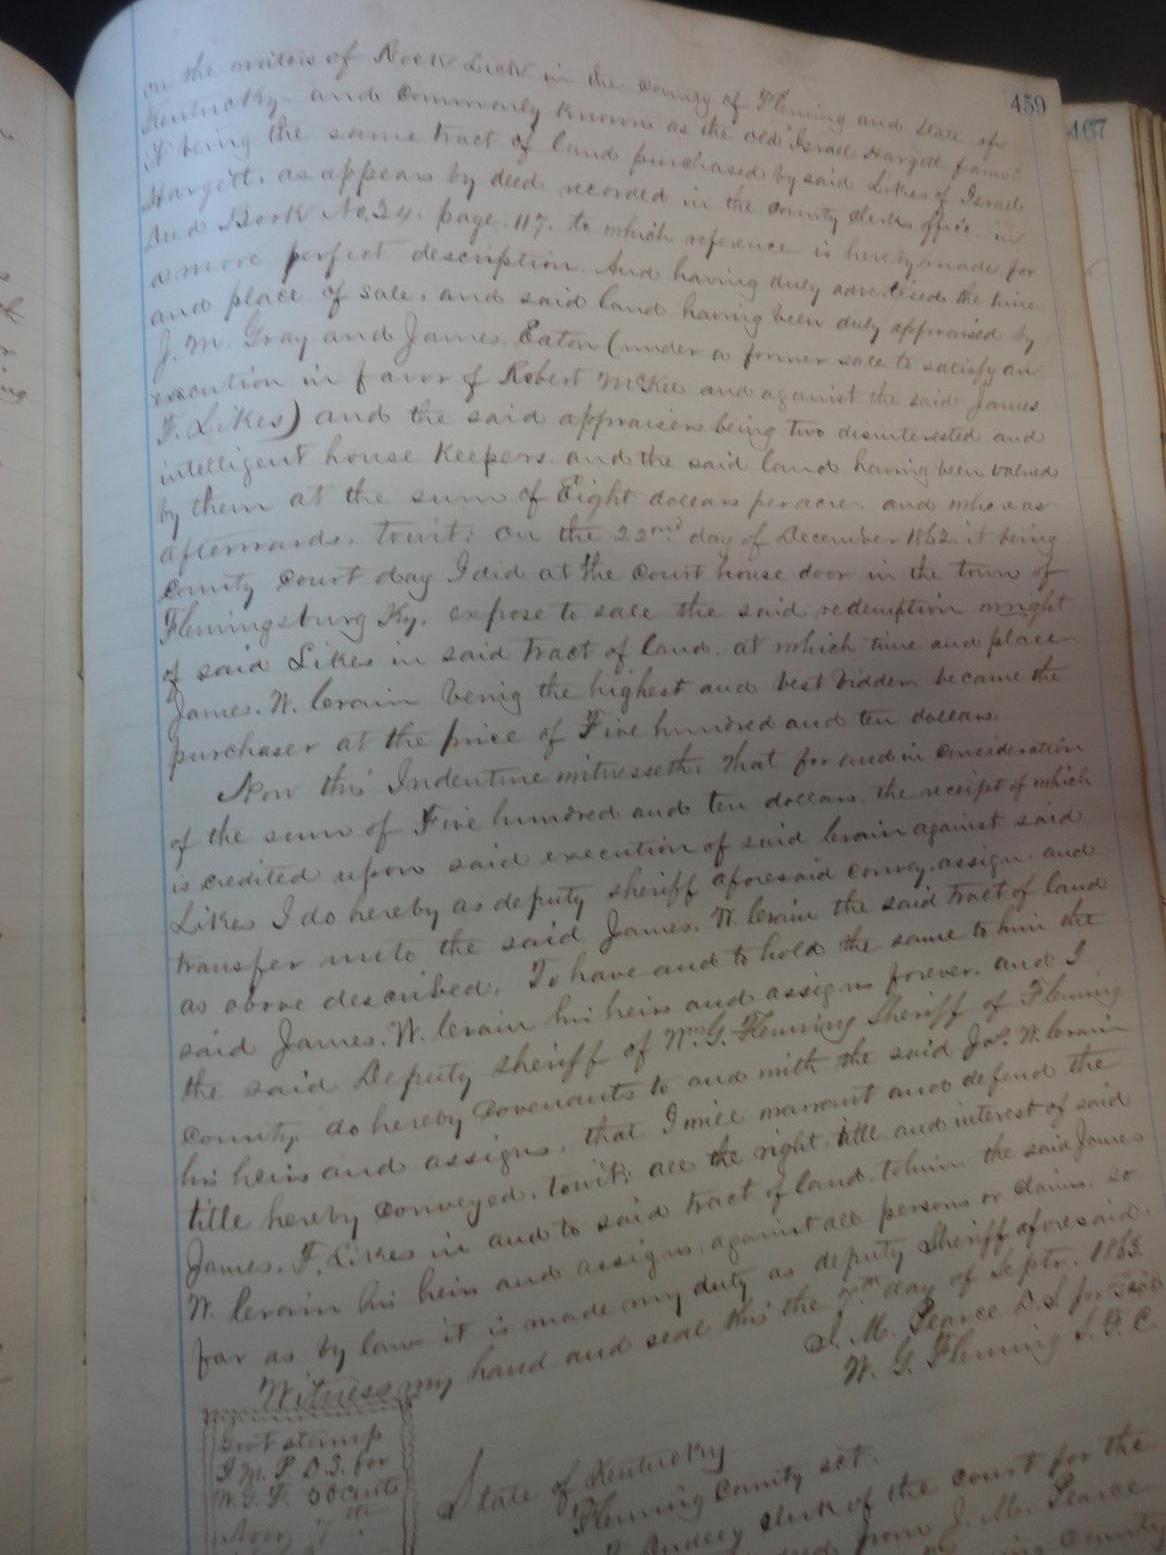 459
467
on the waters of Rock Lick in the county of Fleming and State of
Kentucky and commonly known as the old Israel Hargett farm
it being the same tract of land purchased by said Likes of Israel
Hargett, as appears by deed recorded in the county clerks office in
Deed Book No. 24. page 117. to which reference is hereby made for
a more perfect description. And having duly advertised the time
and place of sale, and said land having been duly appraised by
J. M. Gray and James Eaton (under a former sale to satisfy an
execution in favor of Robert McKee and against the said James
F. Likes) and the said appraisers being two disinterested and
intelligent house keepers. and the said land having been valued
by them at the sum of Eight dollars per acre. and whereas
afterwards, towit: On the 22nd day of December 1862 it being
County Court day I did at the Court house door in the town of
Flemingsburg Ky. expose to sale the said redemption wright
of said Likes in said tract of land. at which time and place
James. W. Crain being the highest and best bidder became the
purchaser at the price of Five hundred and ten dollars.
Now this Indenture witnesseth, That for and in consideration
of the sum of Five hundred and ten dollars, the receipt of which
is credited upon said execution of said Crain against said
Likes I do hereby as deputy sheriff aforesaid convey, assign and
transfer unto the said James. W. Crain the said tract of land
as above described. To have and to hold the same to him the
said James. W. Crain his heirs and assigns forever. and I
the said Deputy sheriff of Wm. G. Fleming Sheriff of Fleming
County, do hereby Covenants to and with the said Jas. W. Crain
his heirs and assigns, that I will warrant and defend the
title hereby conveyed, towit; all the right, title and interest of said
James. F. Likes in and to said tract of land, to him the said James
W. Crain his heirs and assigns, against all persons or claims, so
far as by law it is made my duty as deputy Sheriff aforesaid.
Witness my hand and seal this the 7th day of Septr. 1863
J. M. Pearce D.S. for
W. G. Fleming S. F. C.
Govt stamp
J. M. P. D.S. for
W. G. F. 50 cents
7th
State of Kentucky
Fleming County sct.
clerk of the court for the
from J. M. Pearce
County